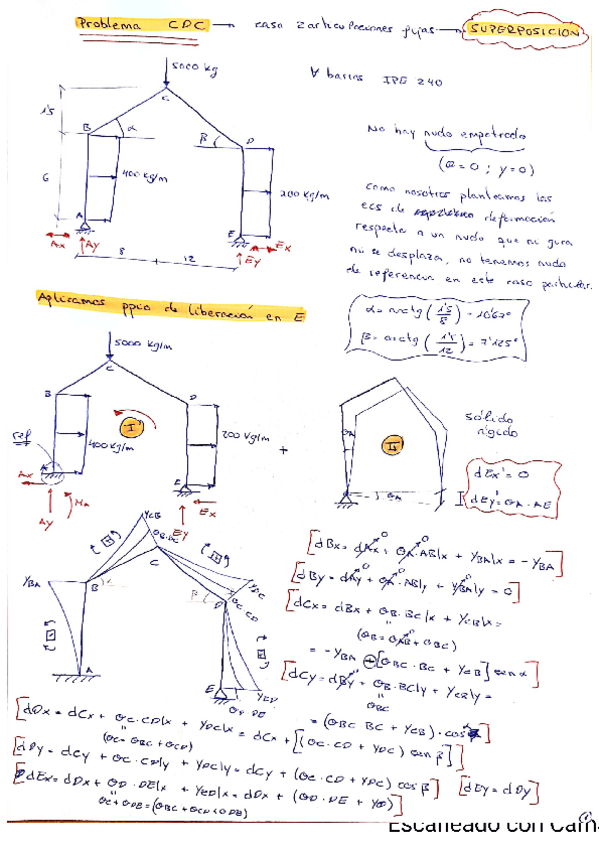 Problema CDC → caso 2 articulaciones fijas → SUPERPOSICION
5000 kg
∀ barras IPE 240
C
1'5
B
α
β
D
No hay nudo empotrado
(θ=0 ; y=0)
6
400 kg/m
200 kg/m
como nosotros planteamos las
ecs de deformación
respecto a un nudo que ni gira
ni se desplaza, no tenemos nudo
de referencia en este caso particular.
A
E
Ax
Ay
Ey
Ex
8
12
α = arctg (1'5/8) = 10'62°
β = arctg (1'5/12) = 7'125°
Aplicamos ppio de liberación en E
5000 kg/m
C
B
D
I
400 kg/m
200 kg/m
+
II
sólido
rígido
ref
A
E
Ax
Ay
MA
Ex
Ey
θA
θA
dEx' = 0
dEy' = θA · AE
YCB
θB·BC
C
YBA
B
α
β
D
YDC
θC·CD
A
E
θD·DE
YCD
[dBx = dAx + θA·AB|x + YBA|x = - YBA]
[dBy = dAy + θA·AB|y + YBA|y = 0]
[dCx = dBx + θB·BC|x + YCB|x =
(θB = θAB + θBC)
= - YBA ⊕ [θBC · BC + YCB] sen α]
[dCy = dBy + θB·BC|y + YCB|y =
θBC
= (θBC · BC + YCB) · cos α]
[dDx = dCx + θC·CD|x + YDC|x = dCx + [(θC·CD + YDC) sen β]]
(θC = θBC + θCD)
[dDy = dCy + θC·CD|y + YDC|y = dCy + (θC·CD + YDC) cos β] [dEy = dDy]
[dEx = dDx + θD·DE|x + YED|x = dDx + (θD·DE + YED)]
θC + θDE = (θBC + θCD + θDE)
1
Escaneado con Cam